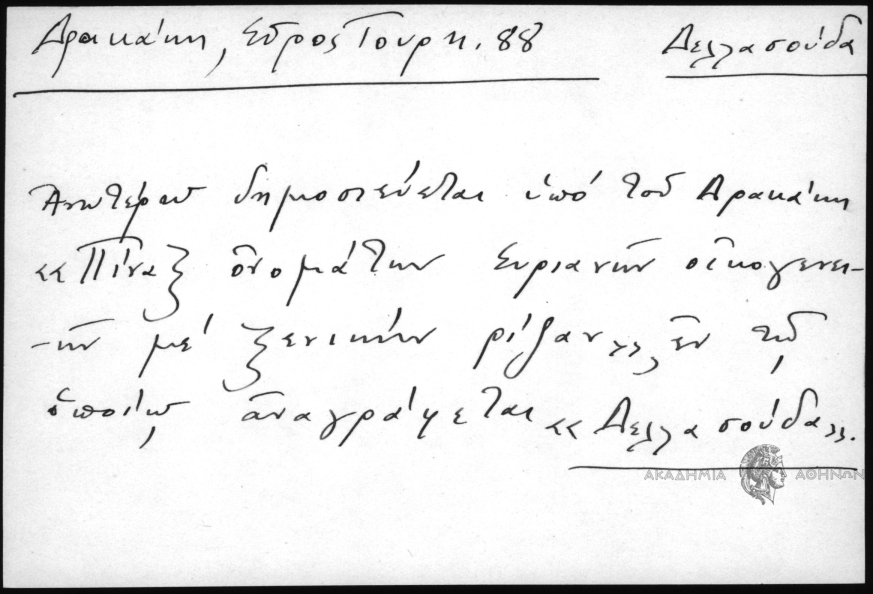 Δρακάκη, Σῦρος Τουρκ. 88 Δελλασούδα
Ἀνωτέρω δημοσιεύεται ὑπό τοῦ Δρακάκη
«Πίναξ ὀνομάτων Συριανῶν οἰκογενει-
-ῶν μέ ξενικήν ρίζαν», ἐν τῷ
ὁποίῳ ἀναγράφεται «Δελλασούδα».
ΑΚΑΔΗΜΙΑ ΑΘΗΝΩΝ